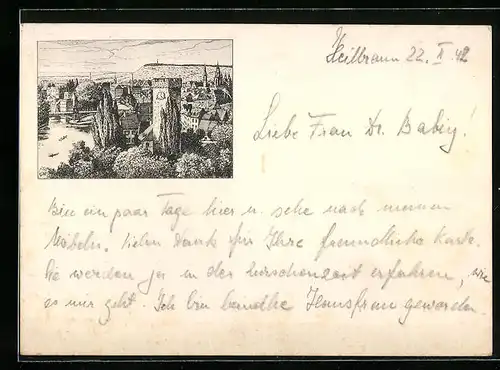 Heilbronn 22. X. 42
Liebe Frau Dr. Babig!
Bin ein paar Tage hier u. sehe nach meinen
Möbeln. Vielen Dank für Ihre freundliche Karte.
Sie werden ja in der Zwischenzeit erfahren, wie
es mir geht. Ich bin beinahe Hausfrau geworden.